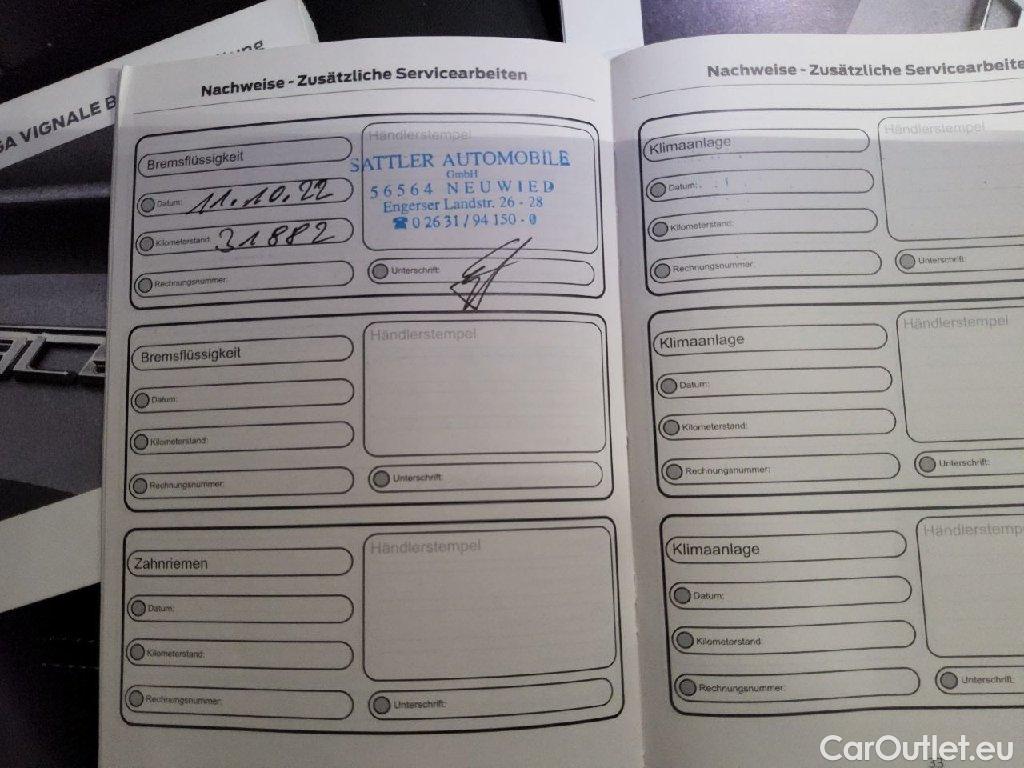 GA VIGNALE B
Nachweise - Zusätzliche Servicearbeiten
Bremsflüssigkeit
Datum: 11.10.22
Kilometerstand: 31882
Rechnungsnummer:
Händlerstempel
SATTLER AUTOMOBILE
GmbH
56564 NEUWIED
Engerser Landstr. 26 - 28
☎ 0 26 31 / 94 150 - 0
Unterschrift:
Bremsflüssigkeit
Datum:
Kilometerstand:
Rechnungsnummer:
Händlerstempel
Unterschrift:
Zahnriemen
Datum:
Kilometerstand:
Rechnungsnummer:
Händlerstempel
Unterschrift:
Nachweise - Zusätzliche Servicearbeite
Klimaanlage
Datum:
Kilometerstand:
Rechnungsnummer:
Händlerstempel
Unterschrift:
Klimaanlage
Datum:
Kilometerstand:
Rechnungsnummer:
Händlerstempel
Unterschrift:
Klimaanlage
Datum:
Kilometerstand:
Rechnungsnummer:
Händlerstemp
Unterschrift:
33
CarOutlet.eu